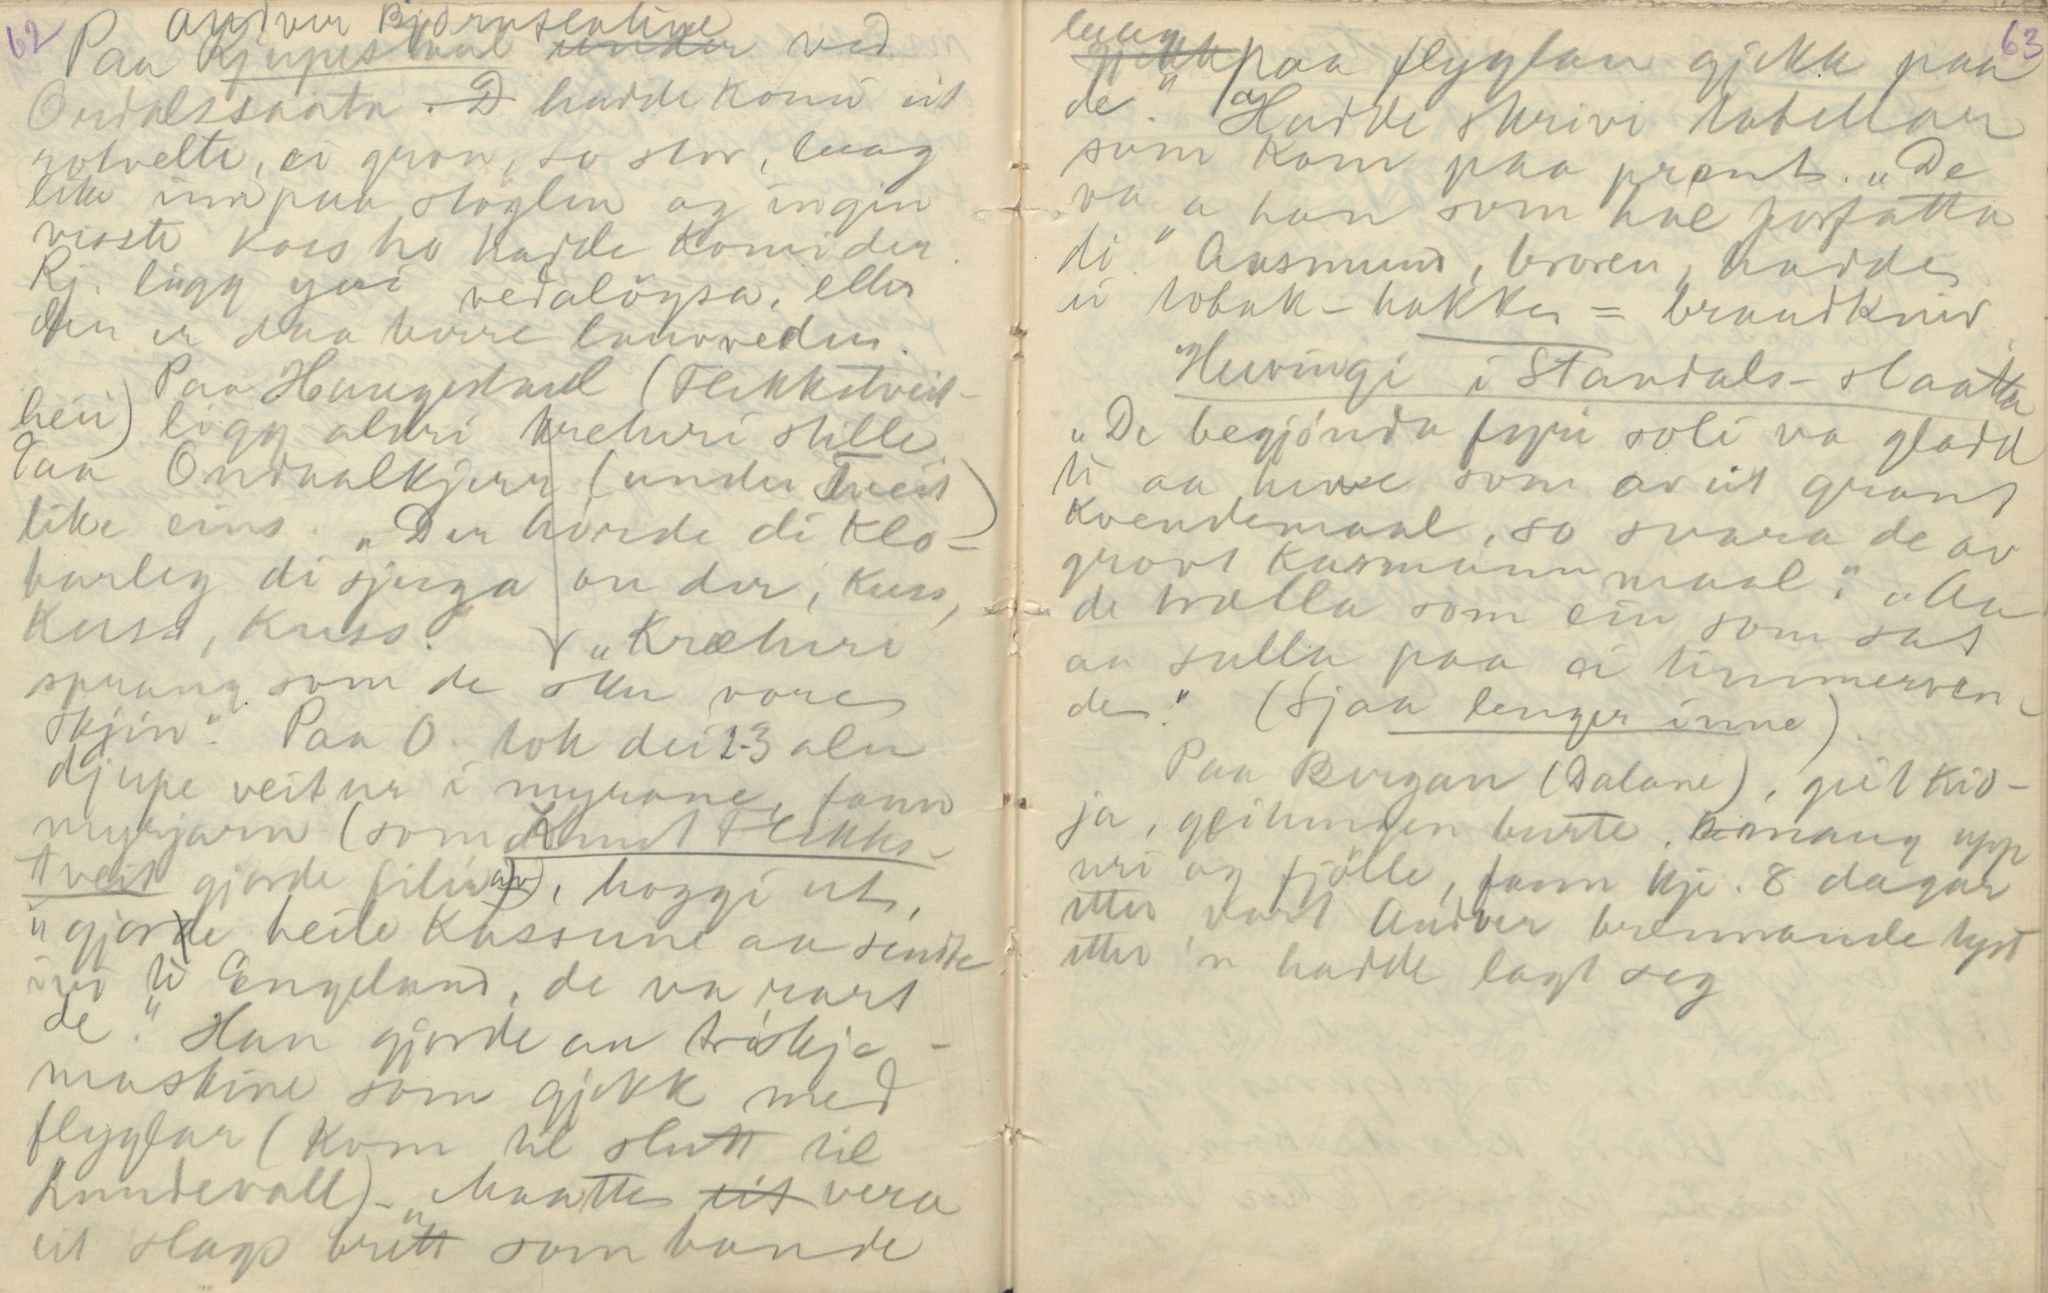 62
Andver Bjørnsenline
Paa Kjupestaul under ved
Ordalssaata. D hadde komi eit
rotvelte, ei gron, so stor, laag
like innpaa støylen og ingin
visste koss ho hadde komi der.
Kj. ligg yvi vedaløysa, eller
der er daa berre lauvveden.
Paa Haugestaul (Flekkstveit-
heii) ligg aldri kreturi stille.
Paa Ordaalkjerr (under Tveit)
like eins. "Der høirde di klo-
barleg di sjuga on der, kuss,
kuss, kuss." "Kræturi
sprang som de sku vore
skjin". Paa O. tok dei 2-3 alen
djupe veitur i myrane, fann
myrjarn (som Knut Flekks-
tveit gjorde filir av), hoggi ut,
"gjorde heile kassune aa sendte
ivi ti Engeland, de va rart
de." Han gjorde an triskje-
maskine som gjekk med
flyglar (kom til slutt til
Lundevall) - "Maatte eit vera
eit slags brett som vande
63
laag
gjekk paa flyglan gjekk paa
de." og Hadde skrivi tabellar
som kom paa prent. "De
va a han som hae forfatta
di." Aasmund, broren, hadde
ei tobak-hakke = brandkniv.
Huringi i Standals-slaatta
"De begjønda fyri soli va gladd
ti aa huve som av eit grant
kvendemaal, so svara de av
grovt kasmannmaal." "Aa
de tralla som ein som sat
aa sulla paa ei timmerven-
de." (Sjaa lenger inne).
Paa Bergan (Dalane), geit kid-
ja, geitungen burte. mang upp
uri og fjølle, fann kje. 8 dagar
etter vart Andver brennande lyst
etter 'n hadde lagt seg